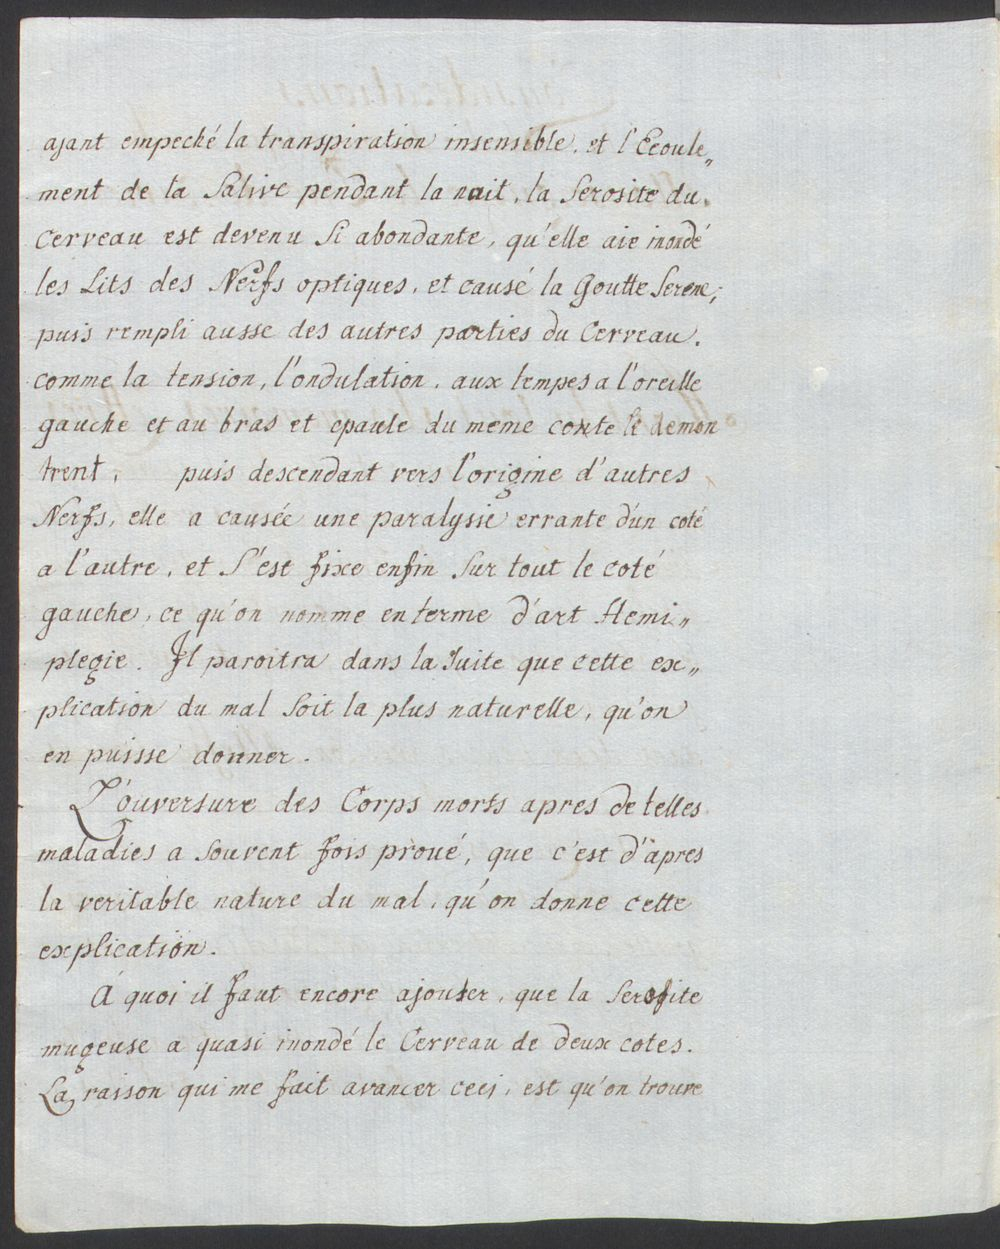 ajant empeché la transpiration insensible, et l'Ecoule„
ment de la Salive pendant la nuit, la Serosite du
Cerveau est devenu Si abondante, qu'elle aie inondé
les Lits des Nerfs optiques, et causé la Goutte Serene;
puis rempli ausse des autres parties du Cerveau.
comme la tension, l'ondulation, aux tempes a l'oreille
gauche et au bras et epaule du meme conte le demon
trent, puis descendant vers l'origine d'autres
Nerfs, elle a causée une paralysie errante d'un coté
a l'autre, et S'est fixe enfin Sur tout le coté
gauche, ce qu'on nomme en terme d'art Hemi„
plegie. Il paroitra dans la Suite que cette ex„
plication du mal Soit la plus naturelle, qu'on
en puisse donner.
L'ouversure des Corps morts apres de telles
maladies a Souvent fois proué, que c'est d'apres
la veritable nature du mal, qu'on donne cette
explication.
A quoi il faut encore ajouter, que la Serosite
muqeuse a quasi inondé le Cerveau de deux cotes.
La raison qui me fait avancer ceci, est qu'on trouve